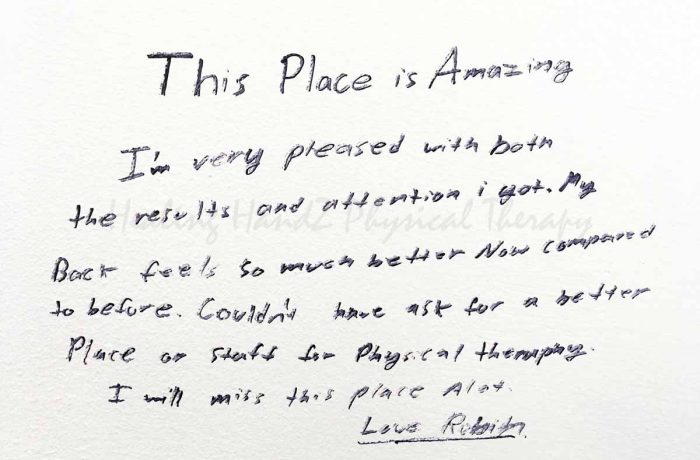 This Place is Amazing
I'm very pleased with both
the results and attention i got. My
Healing HandZ Physical Therapy
Back feels so much better Now compared
to before. Couldn't have ask for a better
Place or staff for Physical theraphy.
I will miss this place Alot.
Love